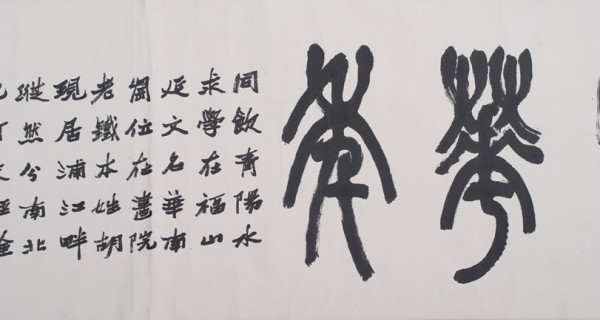 華年
同飲青陽水
求學在福山
延文名華南
崗位在畫院
老鐵本姓胡
現居浦江畔
縱然分南北